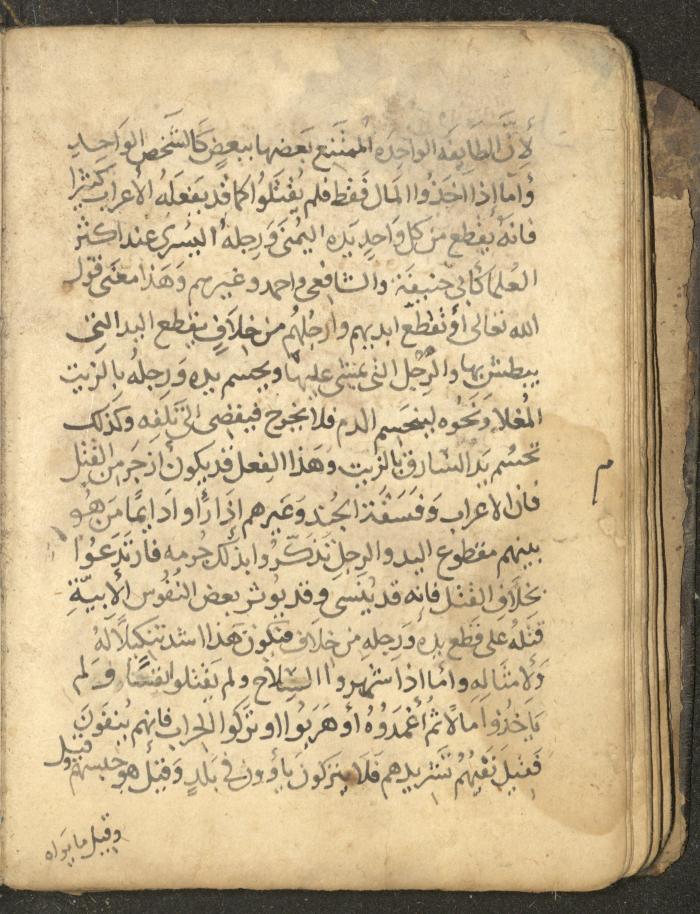 لأنَّ الطايفه الواحده الممتنع بعضها ببعض كالشخص الواحد
وأما اذا اخذوا المال فقط فلم يقتلوا كما قد يفعله الأعراب كثيرا
فانه يقطع من كل واحد يده اليمنى ورجله اليسرى عند اكثر
العلما كأبي حنيفة والشافعي واحمد وغيرهم وهذا معنى قول
الله تعالى أو تقطع ايديهم وارجلهم من خلاف يقطع اليد التي
يبطش بها والرجل التي يمشي عليها ويحسم يده ورجله بالزيت
المغلا ونحوه لينحسم الدم فلا يخرج فيفضي الى تلفه وكذلك
تحسم يد السارق بالزيت وهذا الفعل قد يكون ازجر من القتل
فان الاعراب وفسقة الجند وغيرهم إذا رأوا دايما من هو
بينهم مقطوع اليد والرجل تذكروا بذلك جرمه فارتدعوا
بخلاف القتل فانه قد ينسى وقد يوثر بعض النفوس الأبيّة
قتله على قطع يده ورجله من خلاف فيكون هذا اشد تنكيلا له
ولأمثاله وأما اذا شهروا السلاح ولم يقتلوا نفسا ولم
ياخذوا مالا ثم أغمدوه أو هربوا او تركوا الحراب فانهم ينفون
فقيل نفيهم تشريدهم فلا يتركون يأوون في بلد وقيل هو حبسهم وقيل
وقيل ما يراه
م